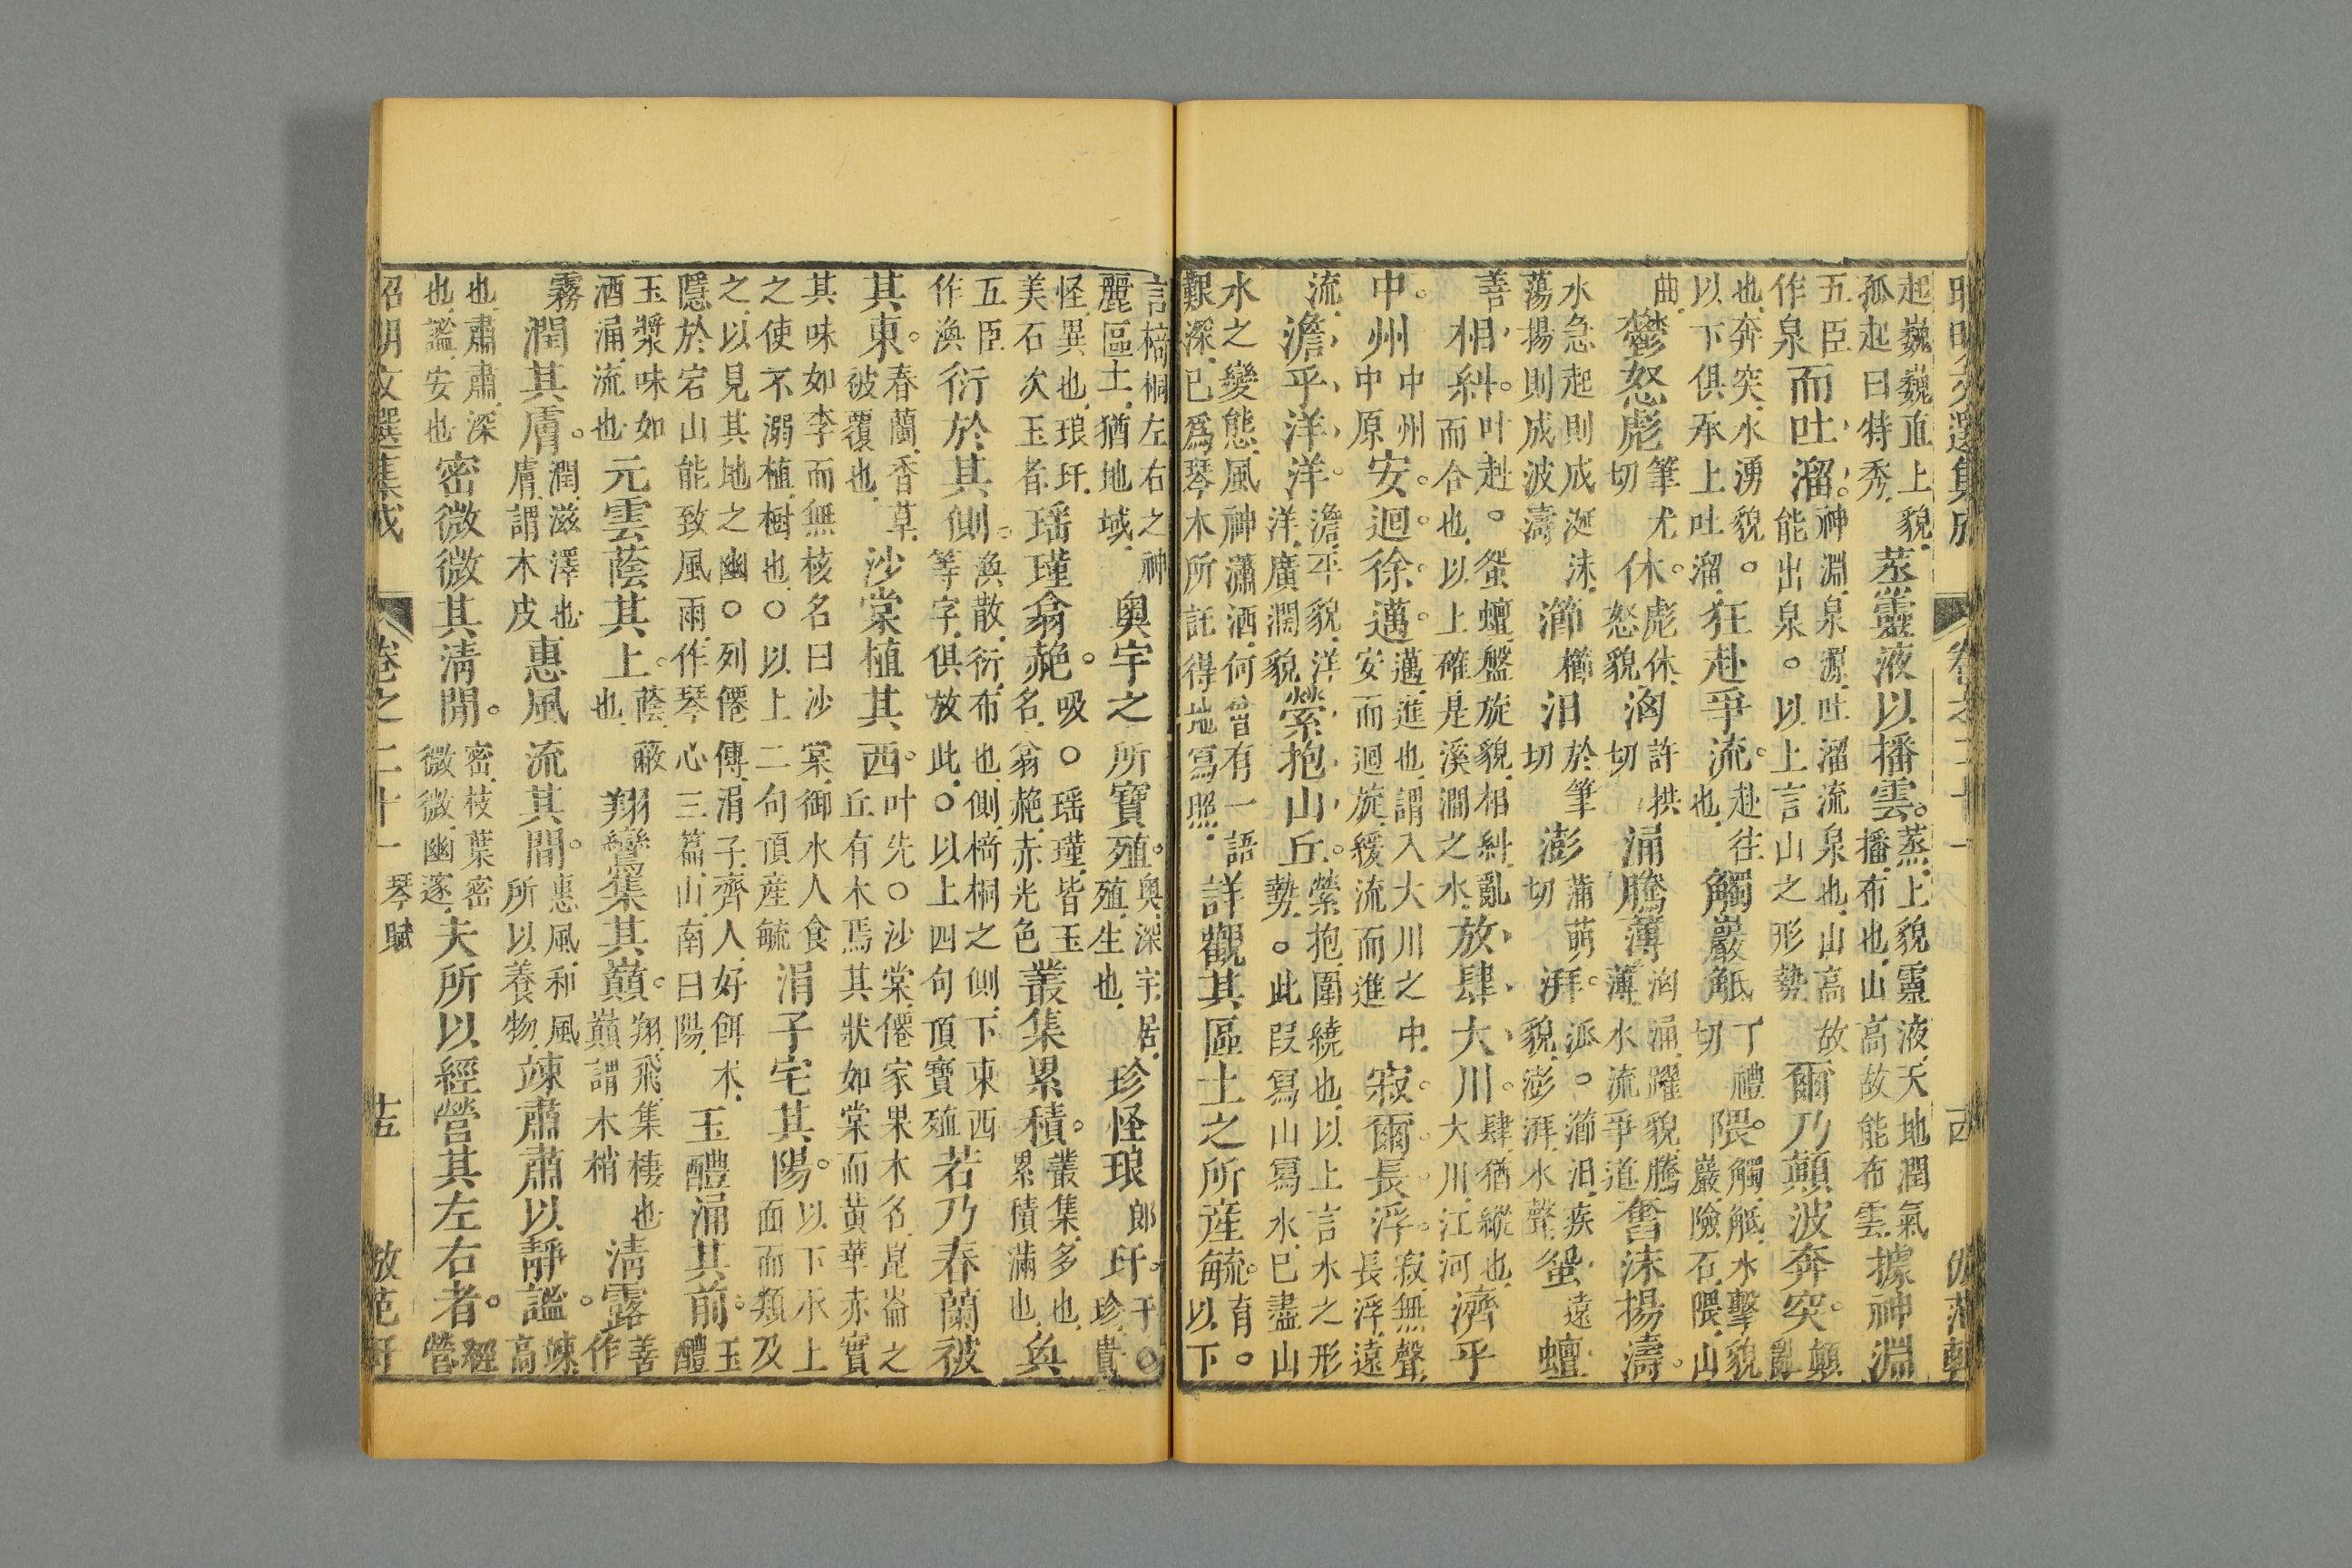 昭明文選集成　卷之二十一　西　倣范軒
起巍巍直上貌
孤起曰特秀
蒸靈液以播雲
蒸上貌靈液天地潤氣
播布也山高故能布雲
據神淵
五臣
作泉
而吐溜
神淵泉源吐溜流泉也山高故
能出泉○以上言山之形勢
爾乃顛波奔突
顛
亂
也奔突水湧貌○
以下俱承上吐溜
狂赴爭流
赴往
也
觸巖觝
丁禮
切
隈
觸觝水擊貌
巖險石隈山
曲
鬱怒彪
筆尤
切
休
彪休
怒貌
洶
許拱
切
涌騰薄
洶涌躍貌騰
薄水流爭道
奮沫揚濤
水急起則成涎沫
蕩揚則成波濤
瀄
櫛
汨
於筆
切
澎
蒲萌
切
湃
派○瀄汨疾
貌澎湃水聲
蜿
遠
蟺
善
相糾
叶赳○蜿蟺盤旋貌相糾亂
而合也以上確是溪澗之水
放肆大川
肆猶縱也
大川江河
濟乎
中州
中州
中原
安迴徐邁
邁進也謂入大川之中
安而迴旋緩流而進
寂爾長浮
寂無聲
長浮遠
流
澹乎洋洋
澹平貌洋
洋廣濶貌
縈抱山丘
縈抱圍繞也以上言水之形
勢○此段寫山寫水已盡山
水之變態風神瀟洒何曾有一語
艱深已爲琴木所託得地寫照
詳觀其區土之所産毓
育○
以下
言椅桐左右之神
麗區土猶地域
奥宇之所寶殖
奥深宇居
殖生也
珍怪琅
郎
玕
干○
珍貴
怪異也琅玕
美石次玉者
瑶瑾翕赩
吸○瑶瑾皆玉
名翕赩赤光色
叢集累積
叢集多也
累積滿也
奐
五臣
作渙
衍於其側
渙散衍布也側椅桐之側下東西
等字俱放此○以上四句頂寶殖
若乃春蘭被
其東
春蘭香草
被覆也
沙棠植其西
叶先○沙棠僊家果木名崑崙之
丘有木焉其狀如棠而黄華赤實
其味如李而無核名曰沙棠御水人食
之使不溺植樹也○以上二句頂産毓
涓子宅其陽
以下承上
面而類及
之以見其地之幽○列僊傳涓子齊人好餌术
隱於宕山能致風雨作琴心三篇山南曰陽
玉醴涌其前
玉
醴
玉漿味如
酒涌流也
元雲蔭其上
蔭蔽
也
翔鸞集其巔
翔飛集棲也
巔謂木梢
清露
善
作
霧
潤其膚
潤滋澤也
膚謂木皮
惠風流其間
惠風和風
所以養物
竦肅肅以靜謐
竦
高
也肅肅深
也謐安也
密微微其清閒
密枝葉密
微微幽邃
夫所以經營其左右者
經
營
昭明文選集成　卷之二十一　琴賦　倣范軒